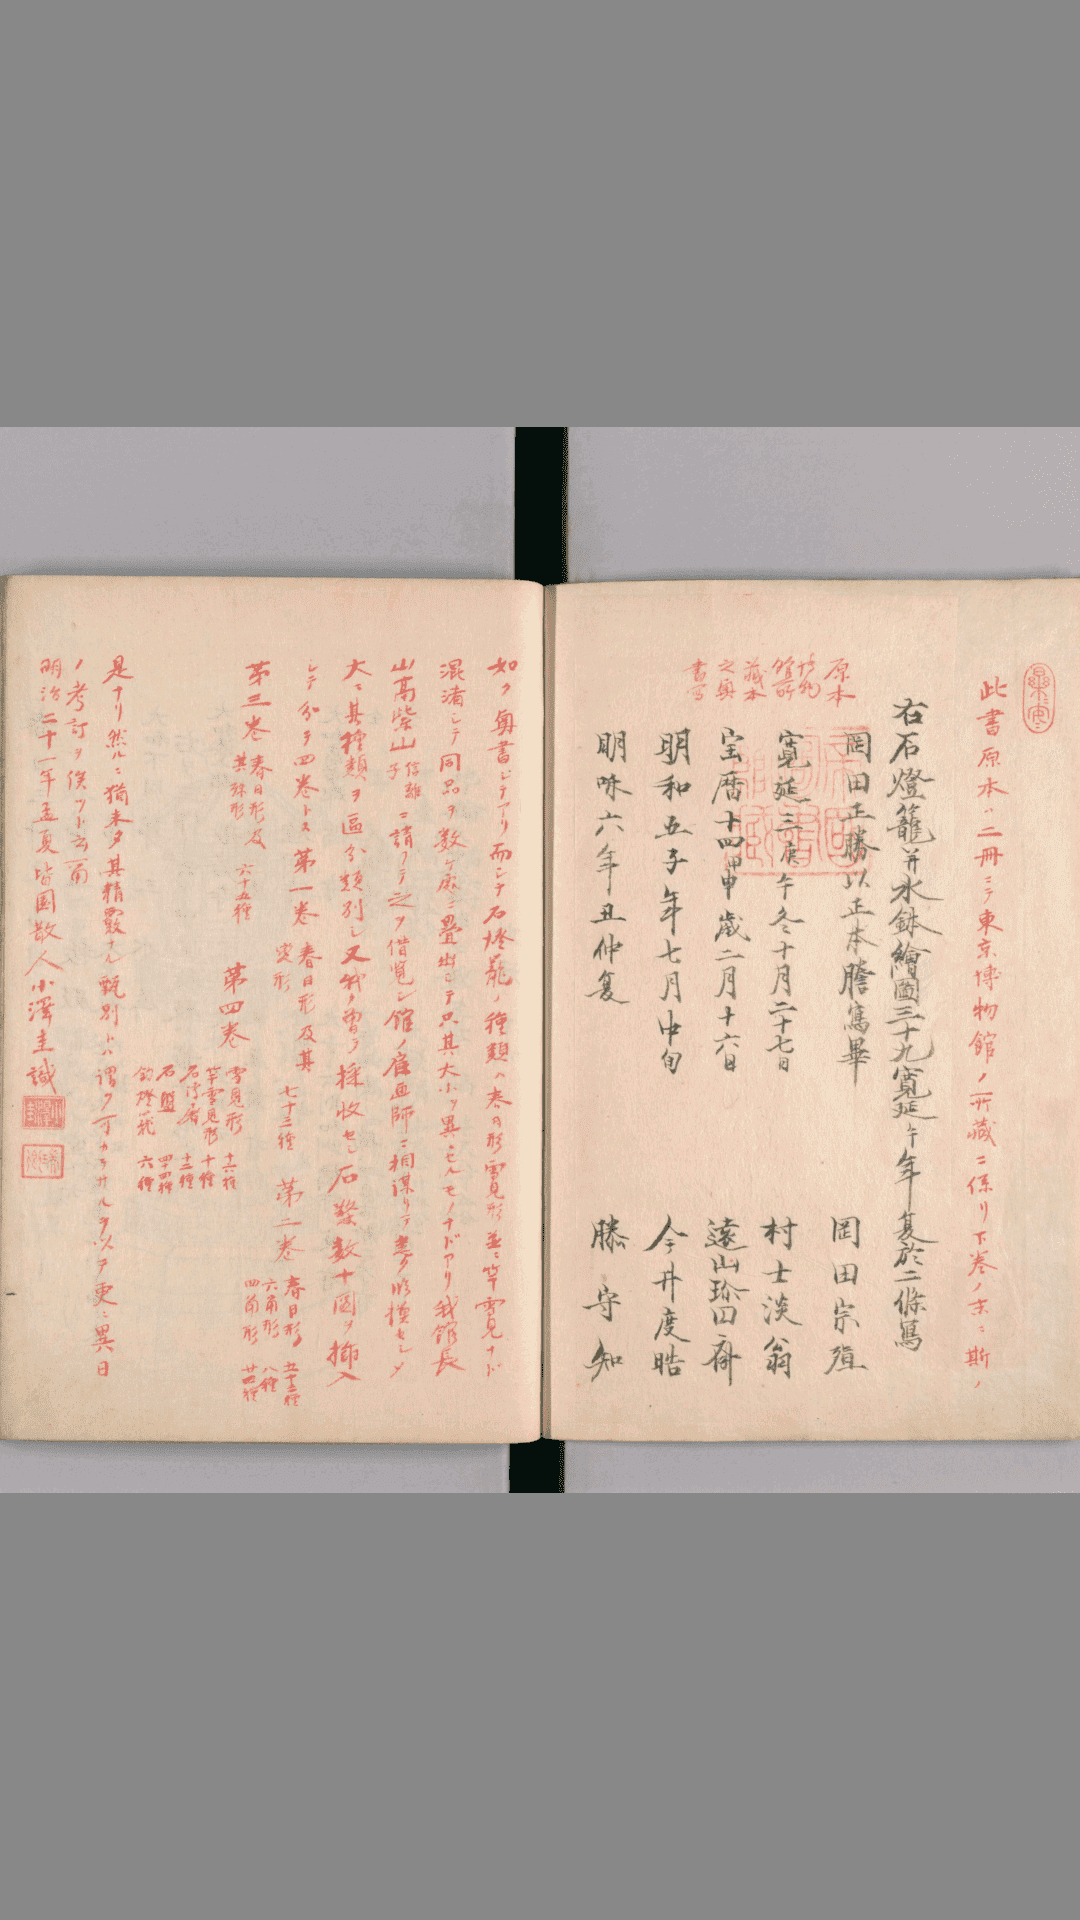 此書原本ハ二冊ニテ東京博物館ノ所藏ニ係リ下巻ノ末ニ斯ノ
右石燈籠并水鉢繪圖三十九寛延午年夏於二條寫
岡田正勝以正本謄寫畢 岡田宗
寛延三庚午冬十月二十七日 村士淡翁
宝暦十四甲申歳二月十六日 遠山珍四齋
明和五子年七月中旬 今井度晧
明味六年丑仲夏 滕守知
原本
博物
館所
藏本
之奥
書写
如ク奥書シテアリ而シテ石燈籠ノ種類ハ春日形雪見形並ニ竿雪見ナド
混淆シテ同品ヲ数ヶ處ニ畳出シテ只其大小ヲ異ニセルモノナドアリ我館長
山高紫山子信離ニ請フテ之ヲ借覧シ館ノ雇画師ニ相謀リテ悉ク影模セシメ
大ニ其種類ヲ區分類別シ又我カ曽ヲ採收セシ石盤数十圖ヲ挿入
シテ分チ四巻トス第一巻 春日形及其変形 七十三種 第二巻 春日形 五十三種 六角形 八種 四角形 廿四種
第三巻 春日形及其珠形 六十五種 第四巻 雪見形 十六種 竿雪見形 十種 十二種 石盤 四十四種 釣燈籠 六種
是ナリ然ルニ猶未タ其精覈ナル甄別トハ謂フ可カラサルヲ以テ更ニ異日
ノ考訂ヲ俟ツト云爾
明治二十一年孟夏皆園散人小澤圭識